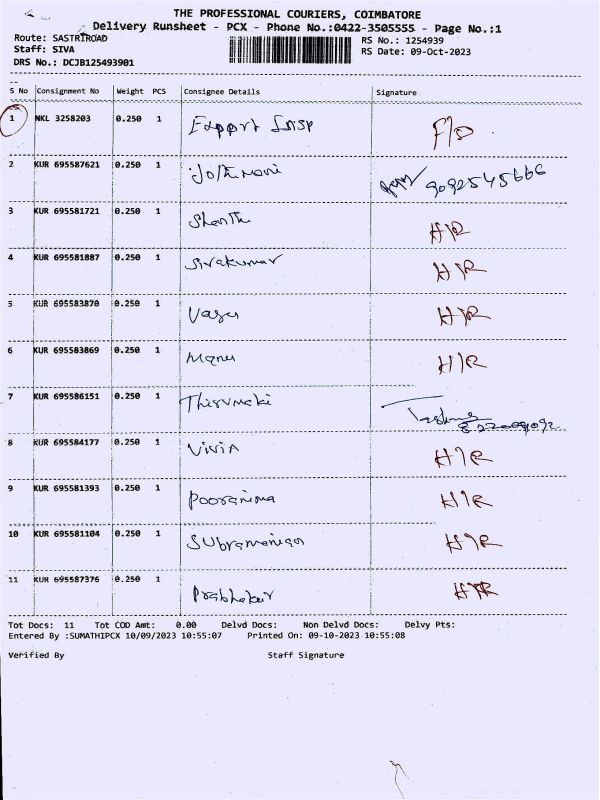 THE PROFESSIONAL COURIERS, COIMBATORE
Delivery Runsheet - PCX - Phone No.:0422-3505555 - Page No.:1
Route: SASTRIROAD RS No.: 1254939
Staff: SIVA RS Date: 09-Oct-2023
DRS No.: DCJB125493901
S No Consignment No Weight PCS Consignee Details Signature
1 NKL 3258203 0.250 1 F/D
2 KUR 695587621 0.250 1 Jothimani 9092545666
3 KUR 695581721 0.250 1 Shanthi H/R
4 KUR 695581887 0.250 1 Sivakumar H/R
5 KUR 695583870 0.250 1 Vasu H/R
6 KUR 695583869 0.250 1 Manu H/R
7 KUR 695586151 0.250 1
8 KUR 695584177 0.250 1 Vivin H/R
9 KUR 695581393 0.250 1 Pooranima H/R
10 KUR 695581104 0.250 1 Subramanian H/R
11 KUR 695587376 0.250 1 Prabhakar H/R
Tot Docs: 11 Tot COD Amt: 0.00 Delvd Docs: Non Delvd Docs: Delvy Pts:
Entered By :SUMATHIPCX 10/09/2023 10:55:07 Printed On: 09-10-2023 10:55:08
Verified By Staff Signature